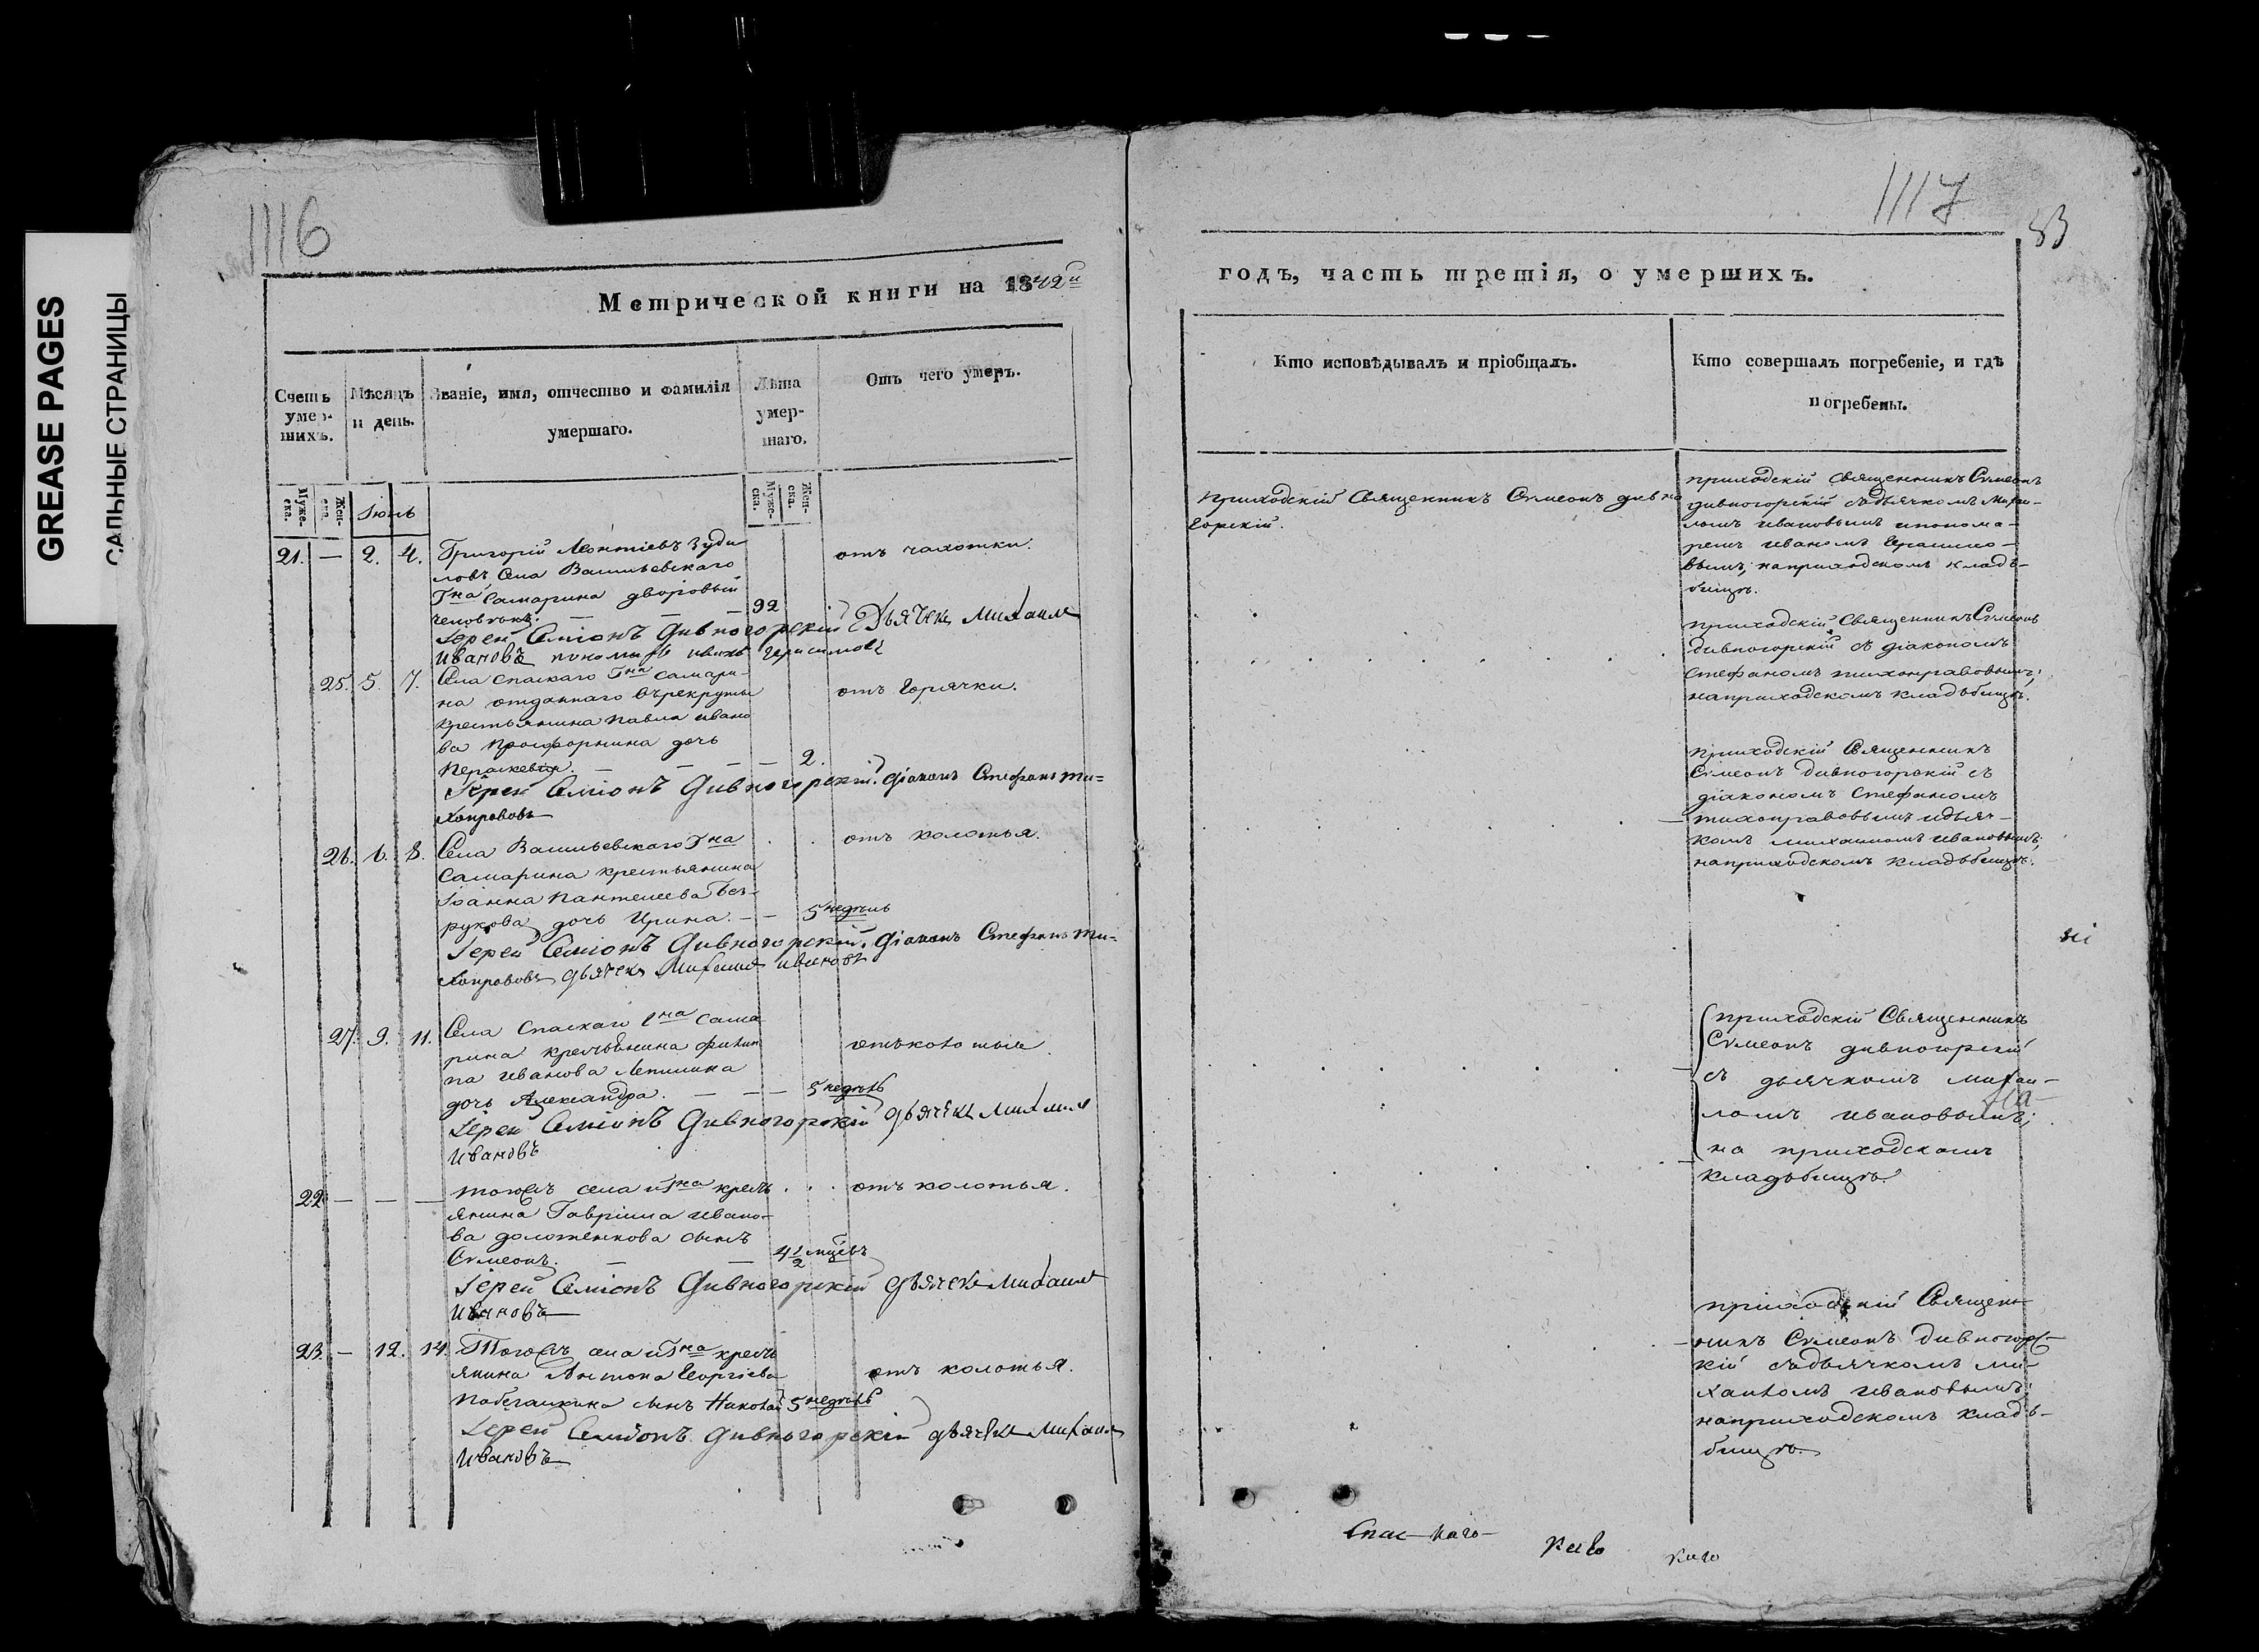 GREASE PAGES
САЛЬНЫЕ СТРАНИЦЫ
1116
Метрической книги на 1842й
Счетъ умер-шихъ.
Мѣсяцъ и день.
Званіе, имя, отчество и фамилія умершаго.
Лѣта умер-шаго.
Отъ чего умеръ.
Муже-ска.
Жен-ска.
Іюнь
Муже-ска.
Жен-ска.
21. — 2. 4. Григорій Леонтіевъ Зуди
ловъ Села Васильевскаго
Гна Самарина дворовый
человѣкъ. — — — 92
отъ чахотки.
Іерей Семіонъ Дивногорскій Дьячекъ Михаилъ
Ивановъ пономарь Иванъ Герасимовъ
25. 5. 7. Села Спаскаго Гна Самари-
на отданнаго врекруты
крестьянина Павла Ивано
ва Просфорнина дочь
Пераскевія. — — — — 2.
отъ Горячки.
Іерей Семіонъ Дивногорскій. Діаконъ Стефанъ Ти=
хонравовъ
26. 6. 8. Села Васильевскаго Гна
Самарина крестьянина
Іоанна Пантелеева Без-
рукова дочь Ирина. — — 5 недѣль
отъ колотья.
Іерей Семіонъ Дивногорскій. Діаконъ Стефанъ Ти=
хонравовъ дьячекъ Михаилъ Ивановъ
27. 9. 11. Села Спаскаго Гна Сама
рина крестьянина Филип
па Иванова Лепилина
дочь Александра. — — — 5 недѣль
отъ колотья.
Іерей Семіонъ Дивногорскій дьячекъ Михаилъ
Ивановъ
22. — — — тогожъ села и Гна кресть
янина Гавріила Ивано-
ва доложенкова сынъ
Сѵмеонъ. — — 4 1/2 мцевъ
отъ колотья.
Іерей Семіонъ Дивногорскій дьячекъ Михаилъ
Ивановъ
23. — 12. 14. Тогожъ села и Гна кресть
янина Антона Георгіева
сынъ Николай 5 недѣль
отъ колотья.
Іерей Семіонъ Дивногорскій дьячекъ Михаилъ
Ивановъ
1117
53
годъ, часть третія, о умершихъ.
Кто исповѣдывалъ и пріобщалъ.
Кто совершалъ погребеніе, и гдѣ погребены.
приходскій Священникъ Сѵмеонъ дивно
горскій.
приходскій Священникъ Сѵмеонъ
дивногорскій съдьячкомъ Миха-
ломъ Ивановымъ ипонома-
ремъ Иваномъ Герасимо-
вымъ; наприходскомъ кладъ-
бищѣ.
приходскій Священникъ Сѵмеонъ
дивногорскій съ діакономъ
Стефаномъ тихонравовымъ;
наприходскомъ кладъбищѣ.
приходскій Священникъ
Сѵмеонъ дивногорскій съ
діакономъ Стефаномъ
тихонравовымъ идьяч-
комъ михаиломъ ивановымъ;
наприходскомъ кладъбищѣ.
приходскій Священникъ
Сѵмеонъ дивногорскій
съ дьячкомъ Михаи-
ломъ ивановымъ;
на приходскомъ
кладъбищѣ.
приходскій Священ-
никъ Сѵмеонъ дивногорс-
кій съдьячкомъ ми-
хаиломъ ивановымъ;
наприходскомъ кладъ-
бищѣ.
Спас-каго